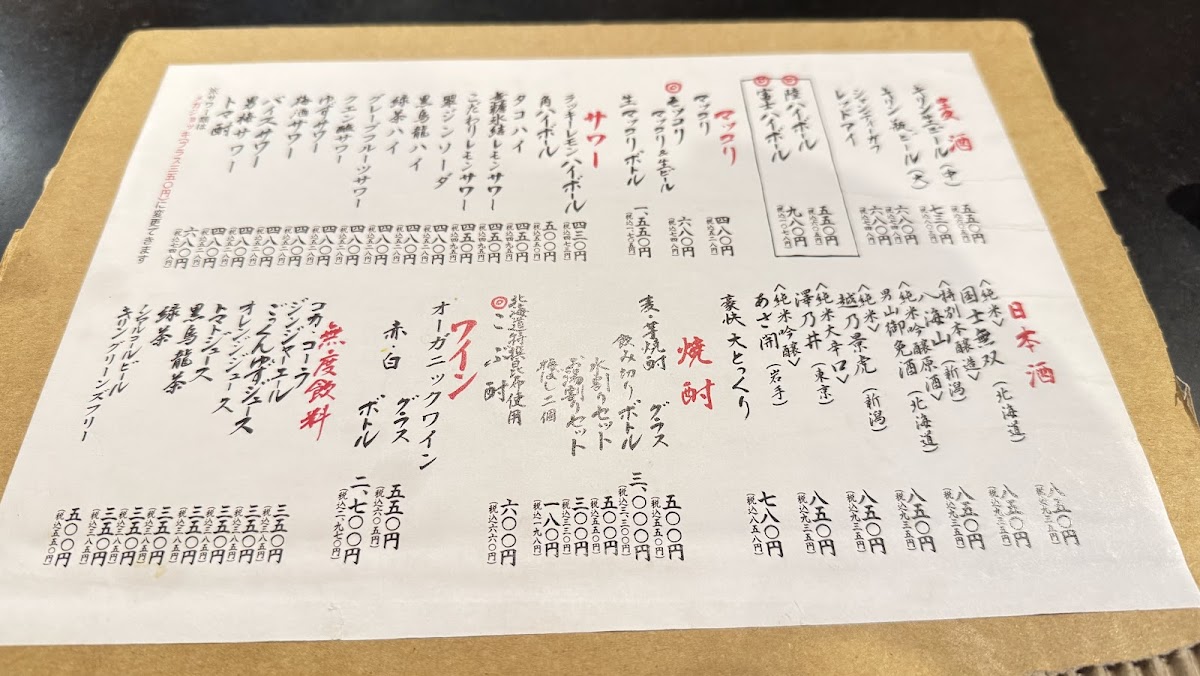 麦酒
キリン生ビール(中) 五五〇円 (税込六〇五円)
キリン瓶ビール(大) 七三〇円 (税込八〇三円)
シャンディーガフ 六八〇円 (税込七四八円)
レッドアイ 六八〇円 (税込七四八円)
陸ハイボール 五五〇円 (税込六〇五円)
富士ハイボール 九八〇円 (税込一〇七八円)
マッコリ
マッコリ 四八〇円 (税込五二八円)
◎モッコリ マッコリ&生ビール 六八〇円 (税込七四八円)
生マッコリボトル 一、五五〇円 (税込一、七〇五円)
サワー
ラッキーレモンハイボール 四三〇円 (税込四七三円)
角ハイボール 五〇〇円 (税込五五〇円)
タコハイ 四五〇円 (税込四九五円)
無糖氷結レモンサワー 四五〇円 (税込四九五円)
こだわりレモンサワー 四五〇円 (税込四九五円)
翠ジンソーダ 四八〇円 (税込五二八円)
黒烏龍ハイ 四八〇円 (税込五二八円)
緑茶ハイ 四八〇円 (税込五二八円)
グレープフルーツサワー 四八〇円 (税込五二八円)
クエン酸サワー 四八〇円 (税込五二八円)
ゆずサワー 四八〇円 (税込五二八円)
梅酒サワー 四八〇円 (税込五二八円)
バイスサワー 四八〇円 (税込五二八円)
男梅サワー 四八〇円 (税込五二八円)
トマト酎 六八〇円 (税込七四八円)
※サワー類は
メガジョッキ(プラス三五〇円)に変更できます
日本酒
<純米>
国士無双 (北海道) 八五〇円 (税込九三五円)
<特別本醸造>
八海山 (新潟) 八五〇円 (税込九三五円)
<純米吟醸原酒>
男山御免酒 (北海道) 八五〇円 (税込九三五円)
<純米>
越乃景虎 (新潟) 八五〇円 (税込九三五円)
<純米大辛口>
澤乃井 (東京) 八五〇円 (税込九三五円)
<純米吟醸>
あさ開 (岩手) 八五〇円 (税込九三五円)
豪快 大とっくり 七八〇円 (税込八五八円)
焼酎
麦・芋焼酎 グラス 五〇〇円 (税込五五〇円)
飲み切りボトル 三、〇〇〇円 (税込三、三〇〇円)
水割りセット 五〇〇円 (税込五五〇円)
お湯割りセット 三〇〇円 (税込三三〇円)
梅ぼし二個 一八〇円 (税込一九八円)
北海道特撰昆布使用
◎こぶ酎 六〇〇円 (税込六六〇円)
ワイン
オーガニックワイン
赤 白 グラス 五五〇円 (税込六〇五円)
ボトル 二、七〇〇円 (税込二、九七〇円)
無度飲料
コカ・コーラ 三五〇円 (税込三八五円)
ジンジャーエール 三五〇円 (税込三八五円)
ごっくんゆずジュース 三五〇円 (税込三八五円)
オレンジジュース 三五〇円 (税込三八五円)
トマトジュース 三五〇円 (税込三八五円)
黒烏龍茶 三五〇円 (税込三八五円)
緑茶 三五〇円 (税込三八五円)
ノンアルコールビール
キリングリーンズフリー 五〇〇円 (税込五五〇円)